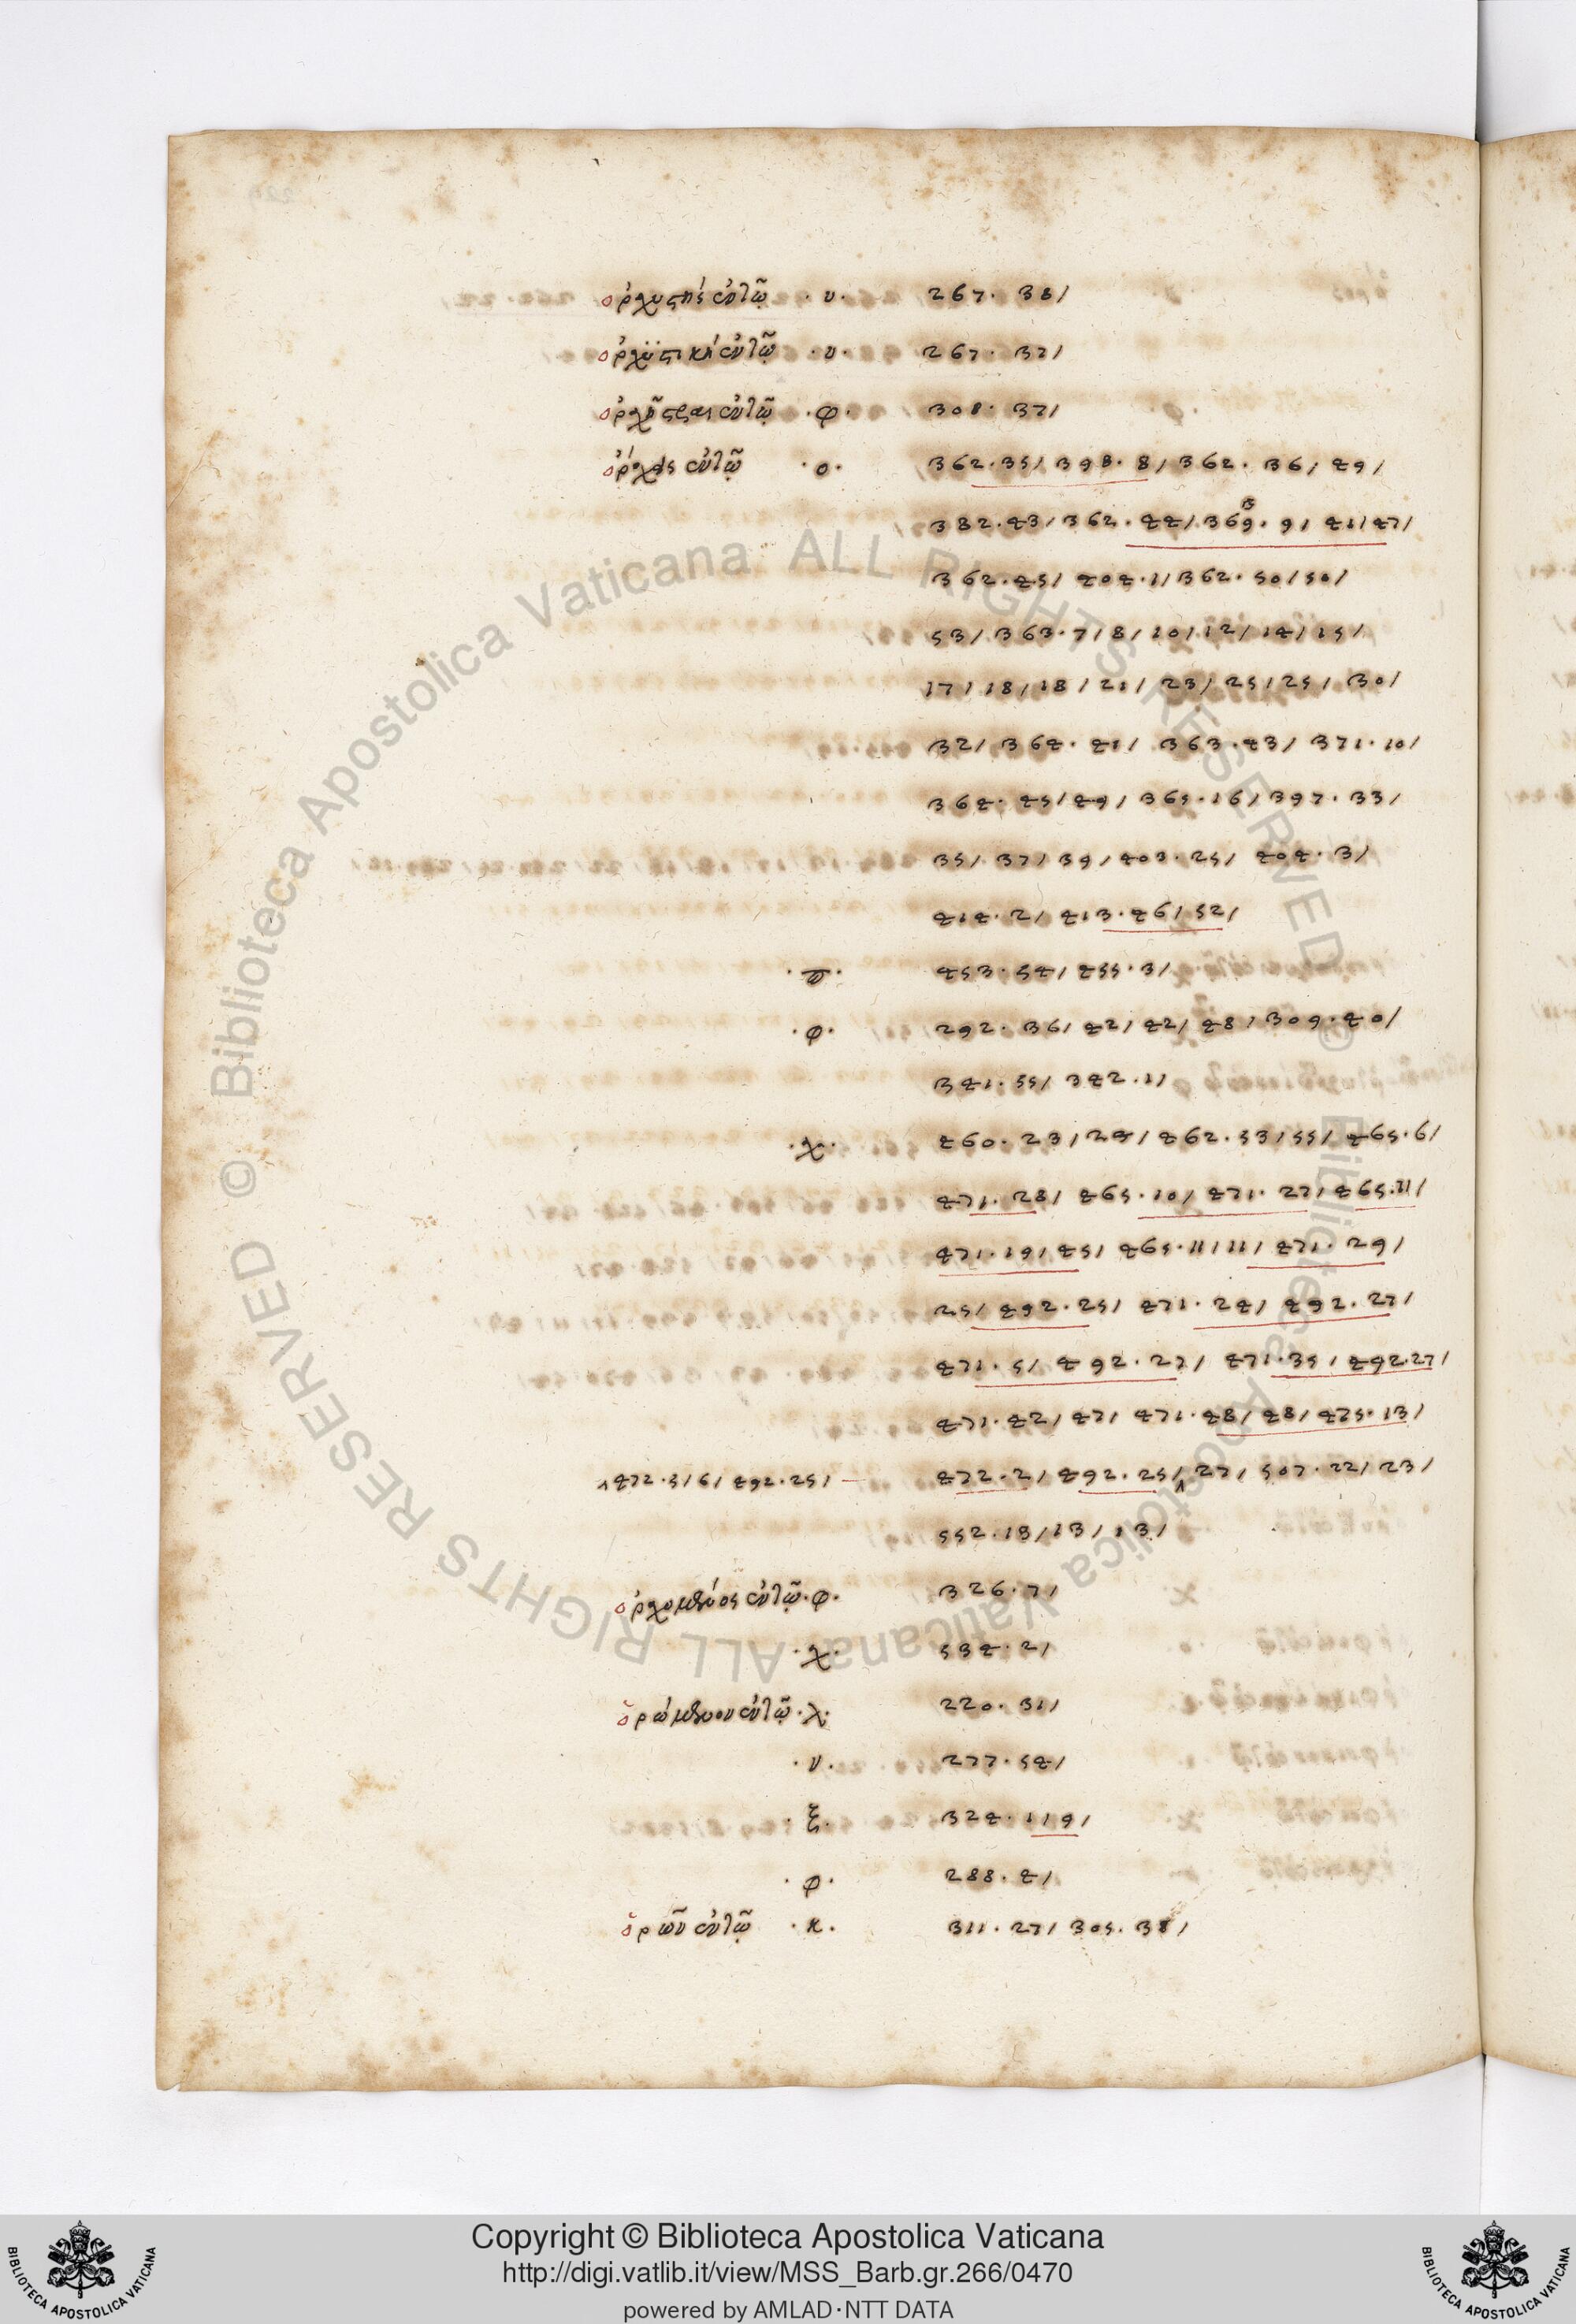 ὀρχηστής ἐν τῷ · υ · 267 · 38 /
ὀρχηστική ἐν τῷ · υ · 267 · 37 /
ἐν τῷ · φ · 308 · 37 /
ἐν τῷ · ο · 362 · 35 / 398 · 8 / 362 · 36 / 49 /
382 · 43 / 362 · 44 / 369 · 9 / 41 / 47 /
362 · 45 / 404 · 1 / 362 · 50 / 50 /
53 / 363 · 7 / 8 / 10 / 12 / 14 / 15 /
17 / 18 / 18 / 21 / 23 / 25 / 25 / 30 /
32 / 364 · 41 / 363 · 43 / 371 · 10 /
364 · 45 / 49 / 365 · 16 / 397 · 33 /
35 / 37 / 39 / 403 · 25 / 404 · 3 /
414 · 2 / 413 · 46 / 52 /
· π · 453 · 54 / 455 · 3 /
· φ · 292 · 36 / 42 / 42 / 48 / 309 · 40 /
341 · 55 / 342 · 1 /
· χ · 460 · 23 / 24 / 462 · 53 / 55 / 465 · 6 /
471 · 28 / 465 · 10 / 471 · 27 / 465 · 11 /
471 · 19 / 45 / 465 · 11 / 11 / 471 · 29 /
25 / 492 · 25 / 471 · 24 / 492 · 27 /
471 · 5 / 492 · 27 / 471 · 35 / 492 · 27 /
471 · 42 / 47 / 471 · 48 / 48 / 475 · 13 /
472 · 5 / 6 / 492 · 25 / — 472 · 2 / 492 · 25 / 27 / 507 · 22 / 23 /
552 · 13 / 13 / 13 /
ὀρχομενός ἐν τῷ · φ · 326 · 7 /
· χ · 534 · 2 /
ὁρώμενον ἐν τῷ · λ · 220 · 31 /
· ν · 277 · 54 /
· ξ · 324 · 1 / 9 /
· φ · 288 · 4 /
ὁρῶν ἐν τῷ · κ · 311 · 27 / 305 · 38 /
© Biblioteca Apostolica Vaticana ALL RIGHTS RESERVED
© Biblioteca Apostolica Vaticana ALL RIGHTS RESERVED
Copyright © Biblioteca Apostolica Vaticana
http://digi.vatlib.it/view/MSS_Barb.gr.266/0470
powered by AMLAD·NTT DATA
BIBLIOTECA APOSTOLICA VATICANA
BIBLIOTECA APOSTOLICA VATICANA